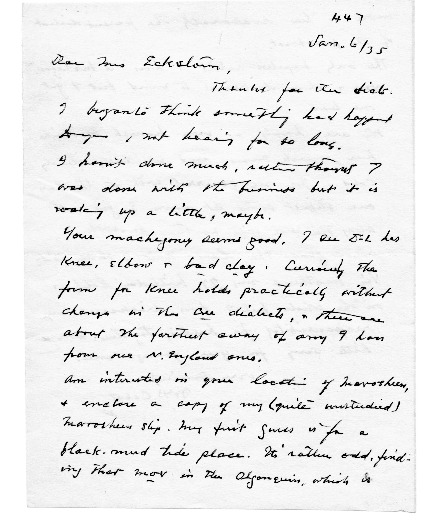 447
Jan. 6/35
Dear Mrs Eckstorm,
Thanks for the dicts.
I began to think something had happened
to you, not hearing for so long.
I haven't done much, rather thought I
was done with the business but it is
waking up a little, maybe.
Your machegoney seems good. I see
Knee, elbow + bad clay. Curiously the
form for Knee holds practically without
change in the Cree dialects, + these are
about the farthest away of any I have
from our N. England ones.
Am interested in your location of Mavosheen,
+ enclose a copy of my (quite unstudied)
Mavosheen slip. My first guess is for a
black-mud tide place. Its rather odd, find-
ing that mov in the Algonquin, which is